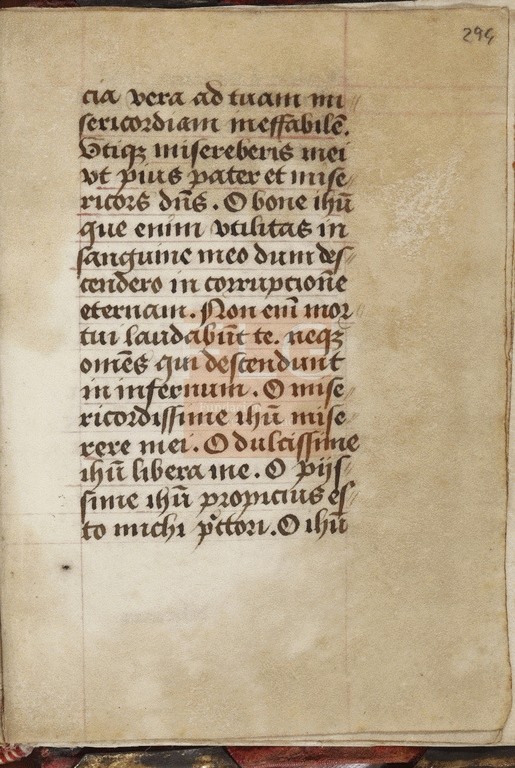 294
cia vera ad tuam mi
sericordiam ineffabilē.
Vtiqꝫ misereberis mei
vt pius pater et mise
ricors dn̄s. O bone ihū
que enim vtilitas in
sanguine meo dum des
cendero in corrupcione
eternam. Non em̄ mor
tui laudabūt te. neqꝫ
omēs qui descendunt
in infernum. O mise
ricordissime ihū mise
rere mei. O dulcissime
ihū libera me. O pijs
sime ihū propicius es
to michi pctori. O ihū